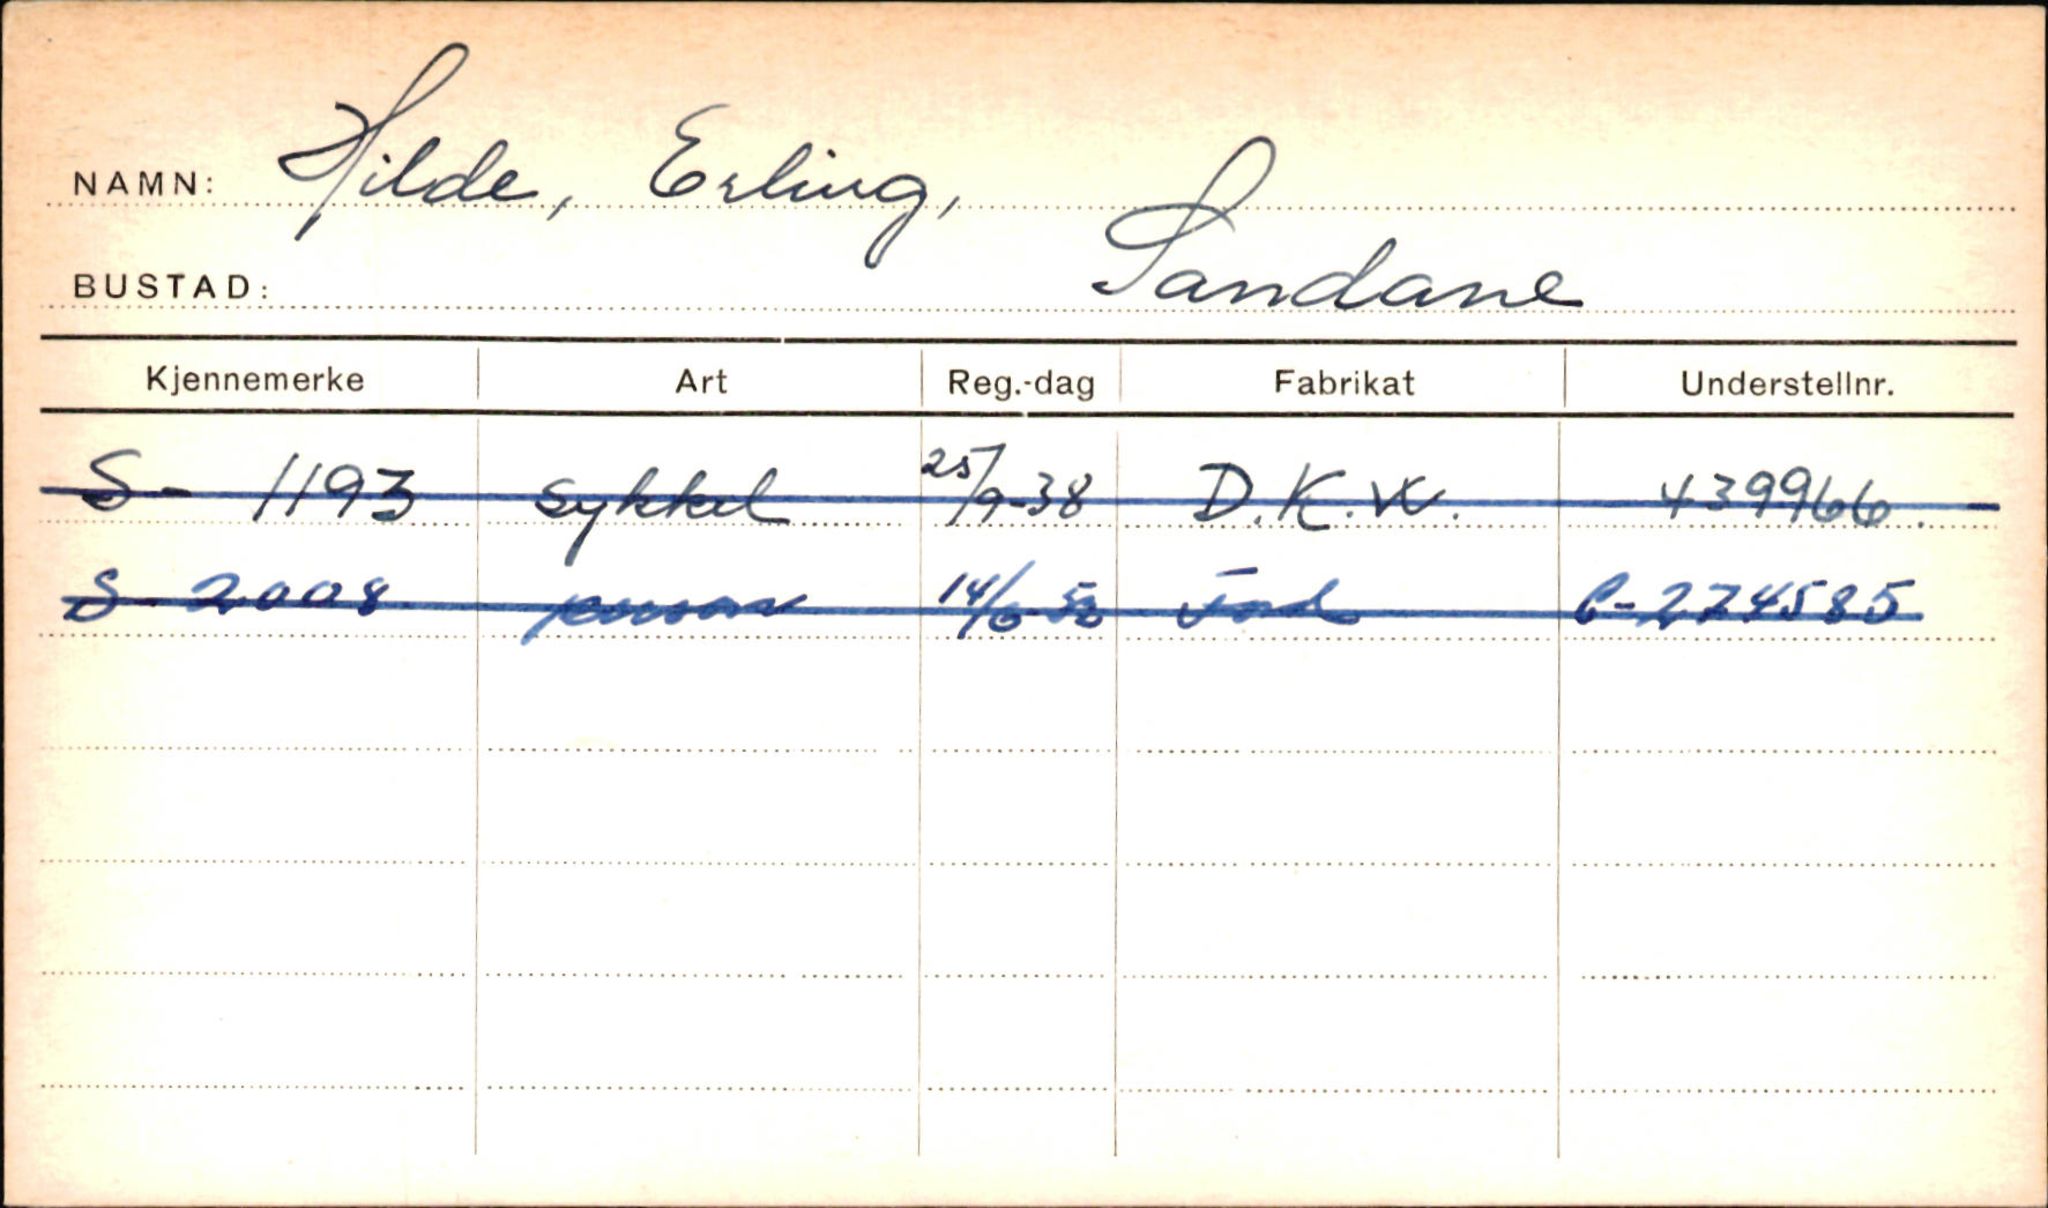 NAMN: Hilde, Erling,
BUSTAD: Sandane
Kjennemerke Art Reg.-dag Fabrikat Understellnr.
S- 1193 sykkel 25/9-38 D.K.W. 439966.
S-2008 person 14/6-50 Ford C-274585